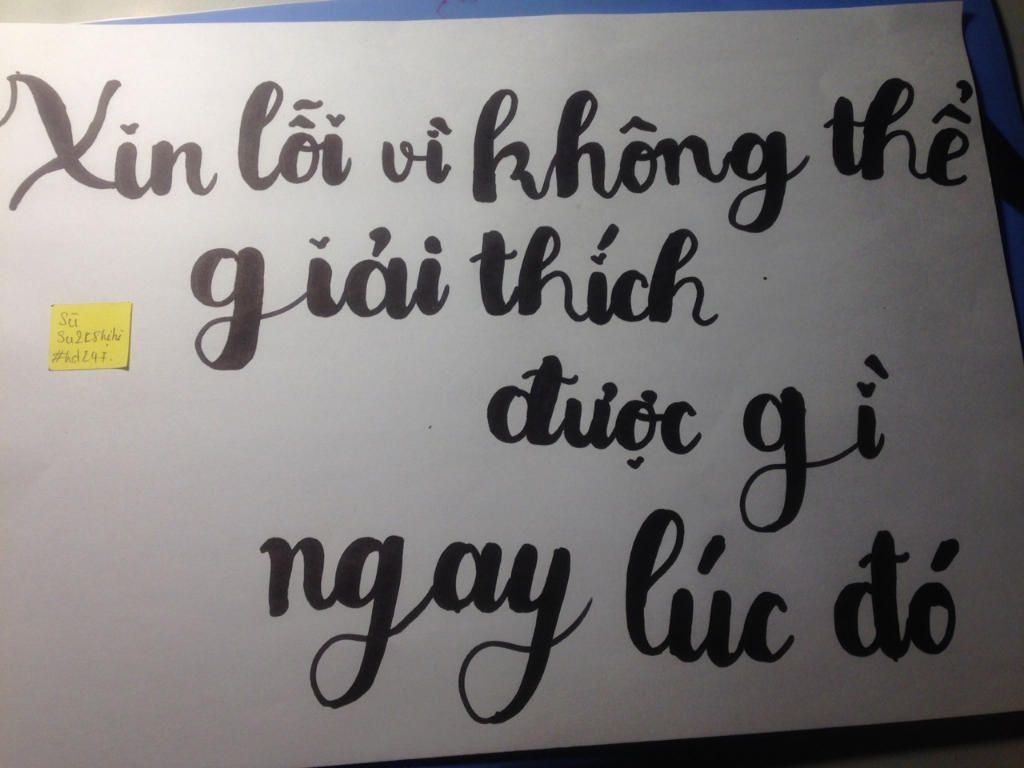 Xin lỗi vì không thể
giải thích
được gì
ngay lúc đó
Sũ
Su2k5hihi
#hd247.